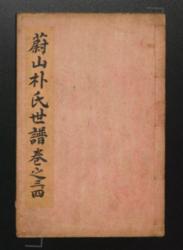 蔚山朴氏世譜卷之三四